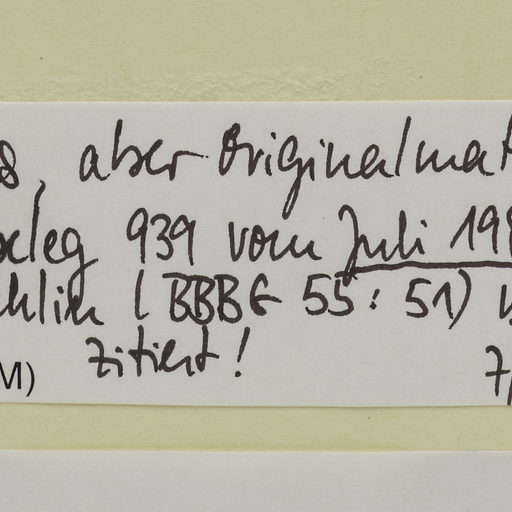 , aber Originalmat
beleg 939 vom Juli 198
hlin (BBBG 55: 51)
zitiert!
M) 7